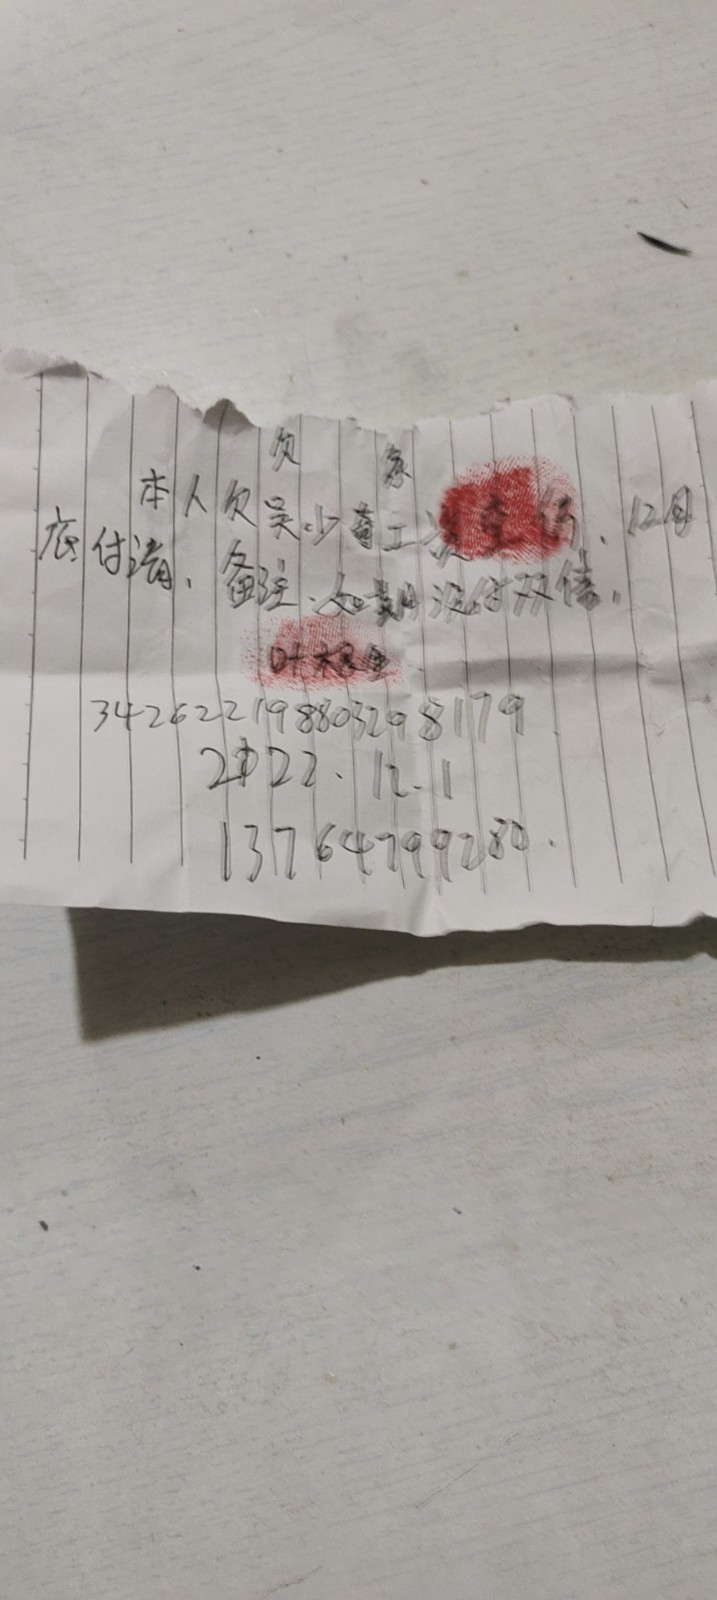 欠 条
本人欠吴少奋工资 .12月
底付清.备注.如期没付双倍.
叶根
342622198803298179
2022.12.1
13764799280.